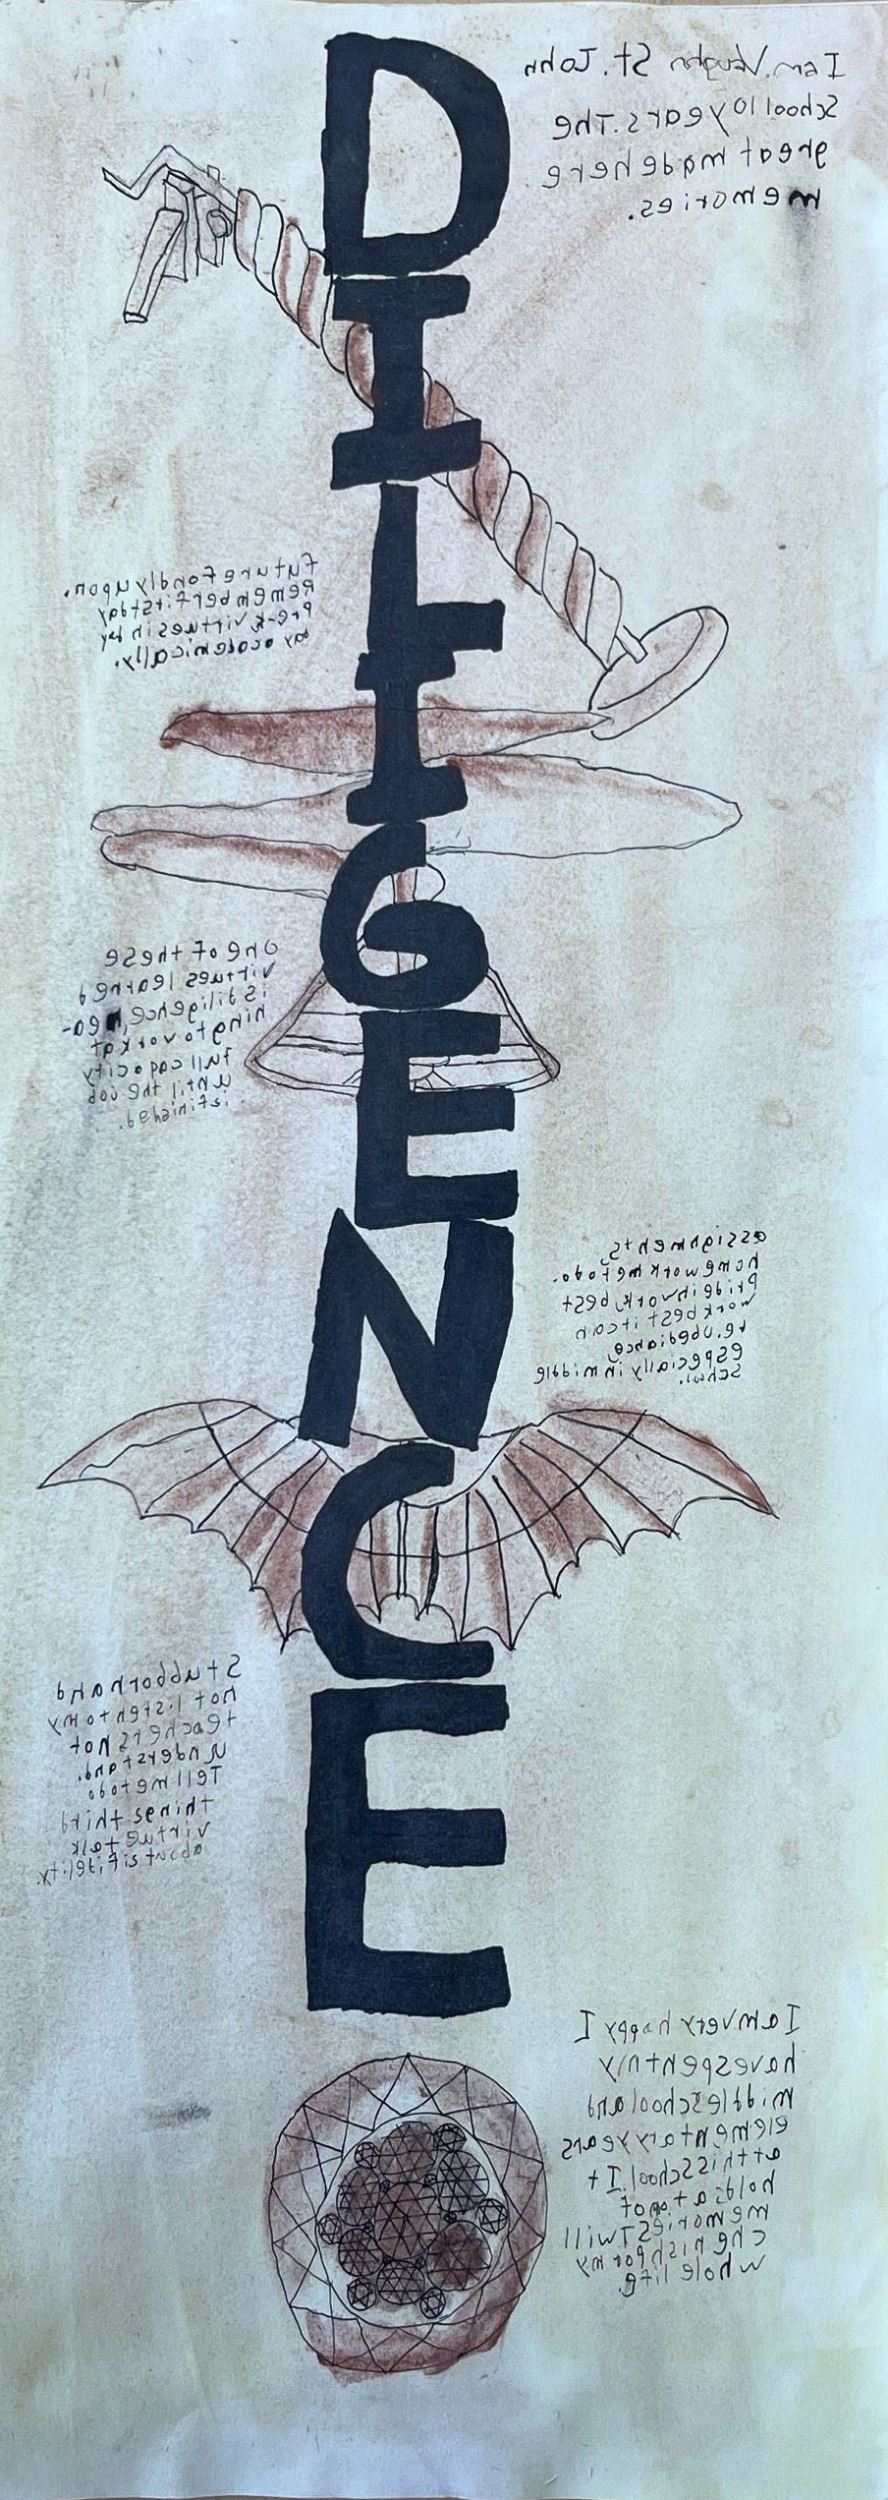 DILIGENCE
I am Vaughn St. John
School 10 years. The
great made here
memories.
future fondly upon.
Remember fitst day
Pre-k virtues in by
ay academically.
one of these
virtues learned
is diligence, mea-
ning to work at
full capacity
until the job
is finished.
assignments,
homework me to do.
Pride in work, best
work best it can
be. obediance,
especially in middle
school.
Stubborn and
not listen to my
teachers not
understand.
Tell me to do
things third
virtue talk
about is fidelity.
I am very happy I
have spent my
middle school and
elementary years
at this school. It
holds a ton of
memories I will
cherish for my
whole life.